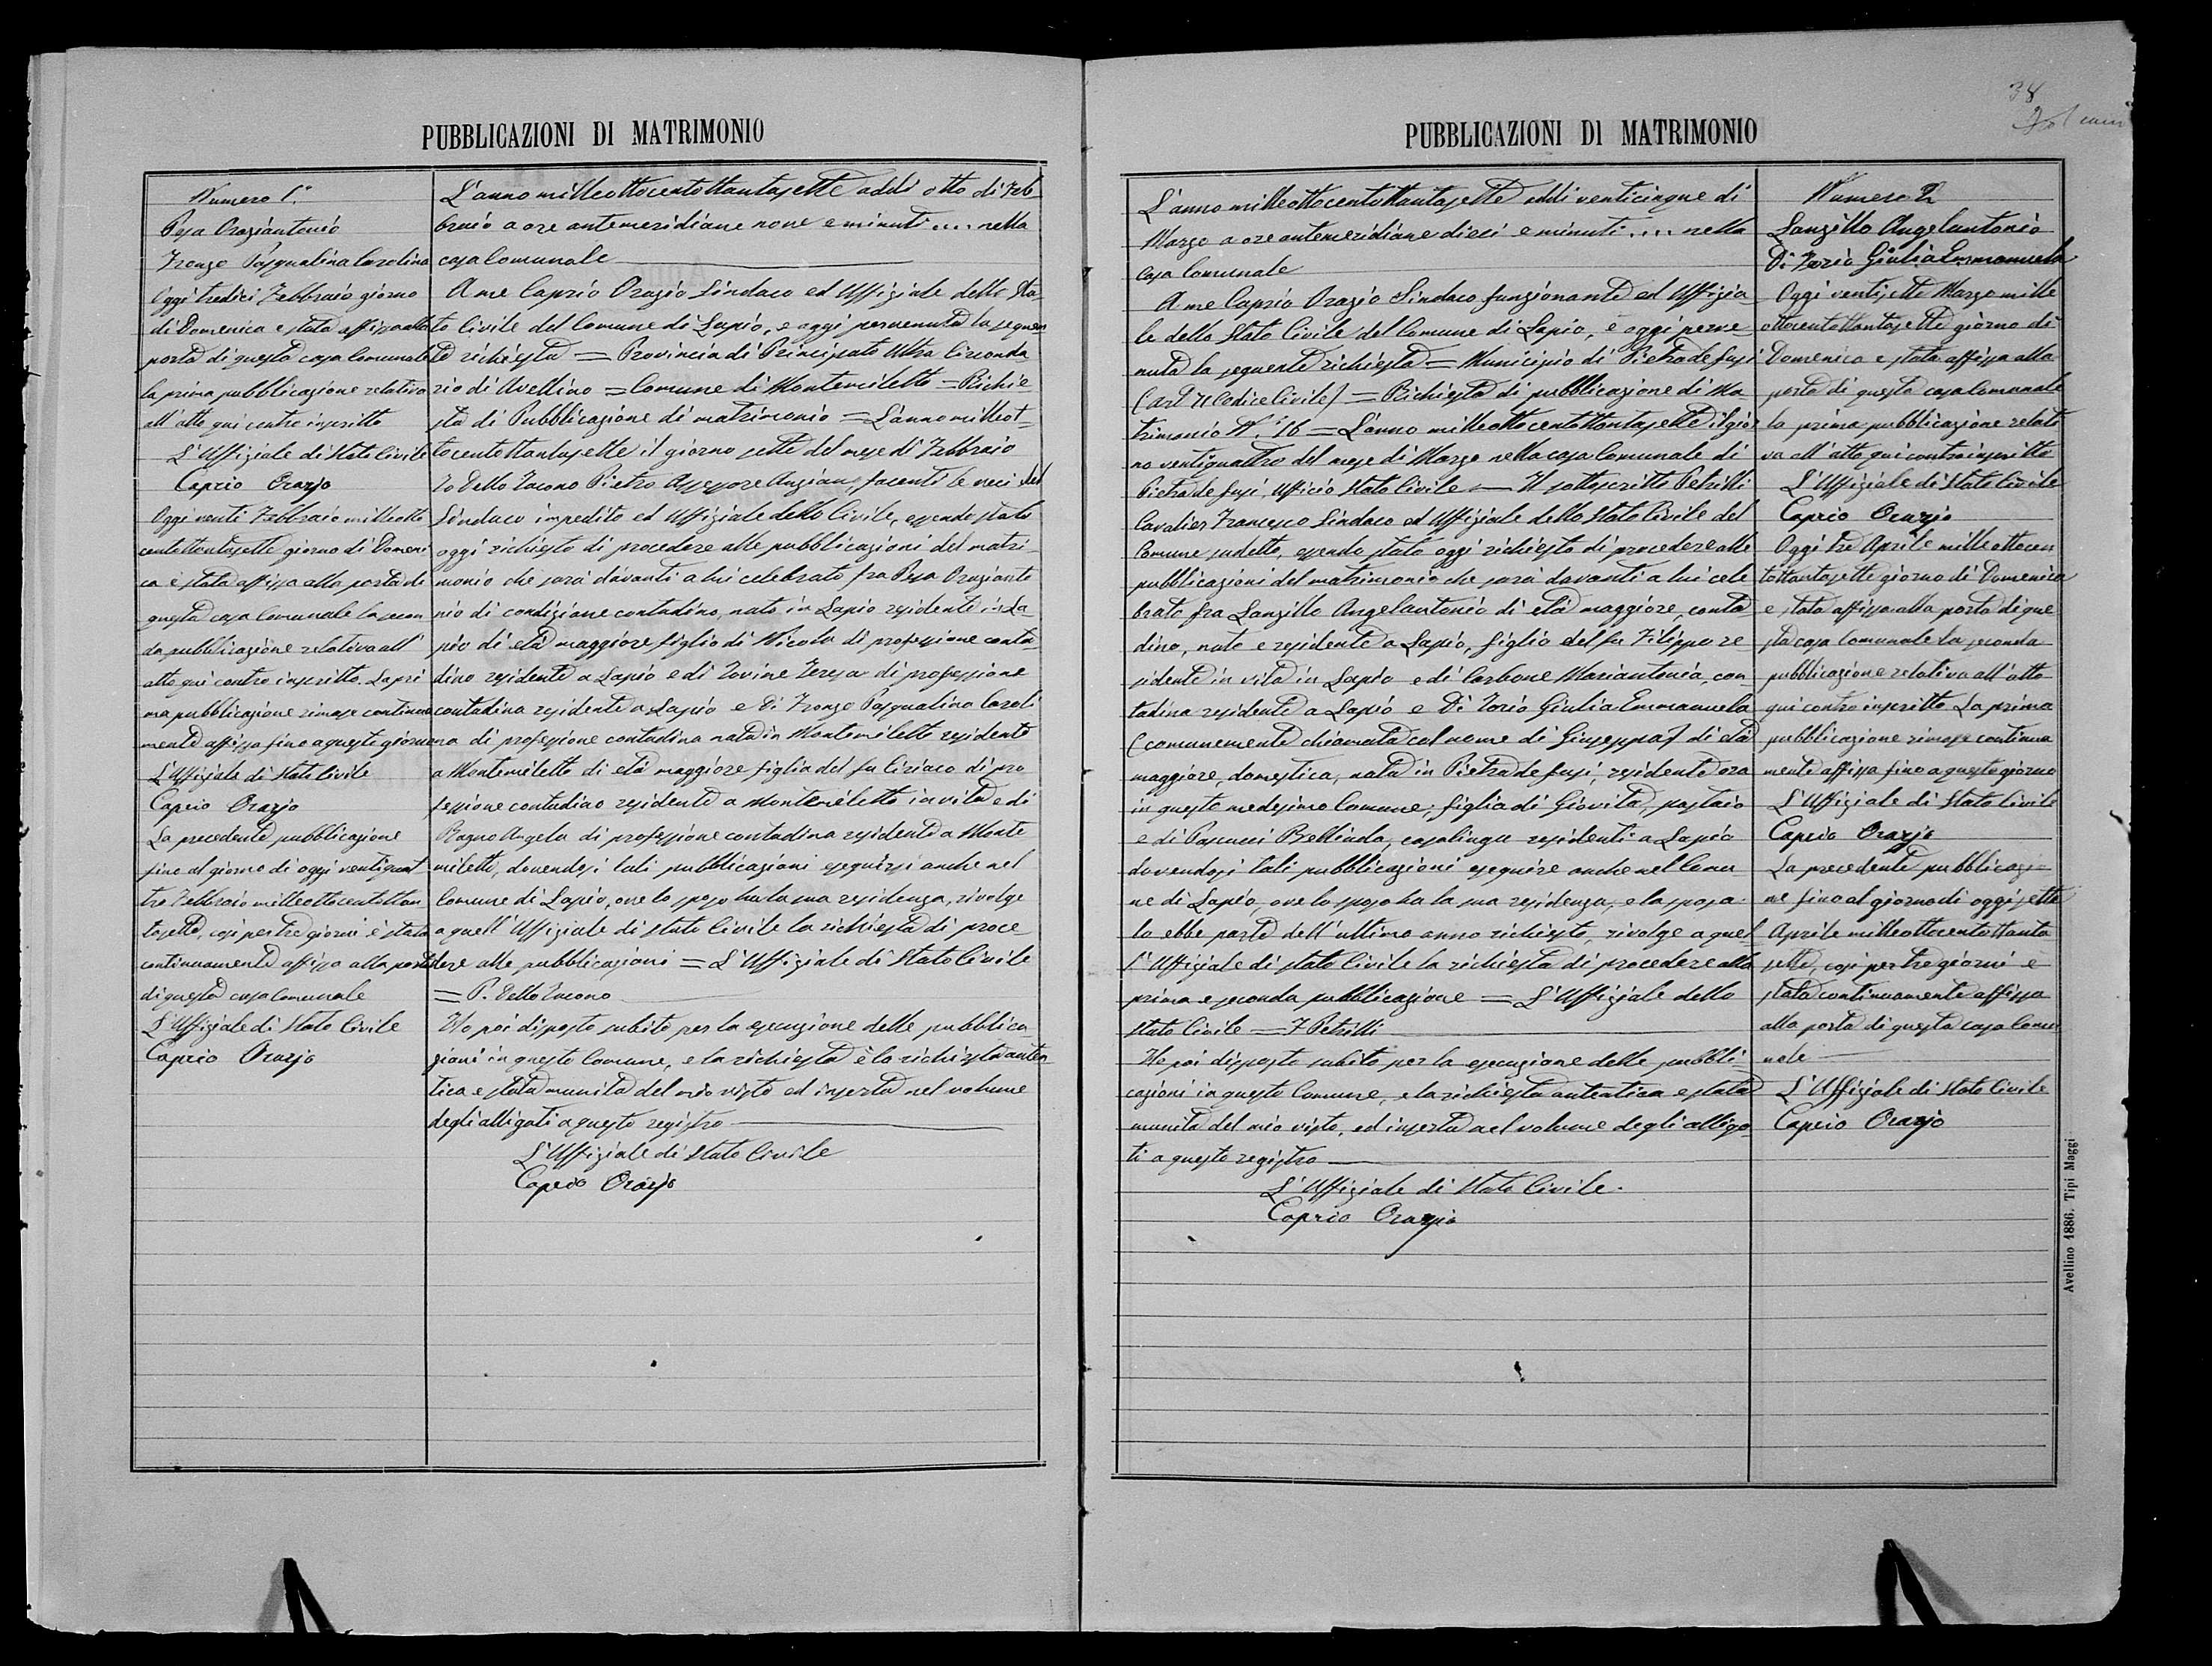 PUBBLICAZIONI DI MATRIMONIO
Numero 1.°
Pesa Oraziantonio
Fronzo Pasqualina Carolina
Oggi tredici Febbraio giorno
di Domenica e stata affissa alla
porta di questa casa Comunale
la prima pubblicazione relativa
all'atto qui contro inscritto
L'Uffiziale di Stato Civile
Caprio Orazio
Oggi venti Febbraio milleotto
centottantasette giorno di Domeni
ca è stata affissa alla porta di
questa casa Comunale la secon
da pubblicazione relativa all'
atto qui contro inscritto. La pri
ma pubblicazione rimase continua
mente affissa fino a questo giorno
L'Uffiziale di Stato Civile
Caprio Orazio
La precedente pubblicazione
fino al giorno di oggi ventiquat
tro Febbraio milleottocentottan
tasette, così per tre giorni è stata
continuamente affissa alla porta
di questa casa Comunale
L'Uffiziale di Stato Civile
Caprio Orazio
L'anno milleottocentottantasette addì otto di Feb
braio a ore antemeridiane nove e minuti .... nella
casa Comunale
A me Caprio Orazio Sindaco ed Uffiziale dello Sta
to Civile del Comune di Lapio, e oggi pervenuta la seguen
te richiesta = Provincia di Principato Ultra Circonda
rio di Avellino = Comune di Montemiletto = Richie
sta di Pubblicazione di matrimonio = L'anno milleot
tocentottantasette il giorno sette del mese di Febbraio
Io Dello Iacono Pietro Assessore Anziano, facenti le veci del
Sindaco impedito ed Uffiziale dello Civile, essendo stato
oggi richiesto di procedere alle pubblicazioni del matri
monio che sarà davanti a lui celebrato fra Pesa Orazianto
nio di condizione contadino, nato in Lapio residente in La
pio di età maggiore figlio di Nicola di professione conta
dino residente a Lapio e di Iovine Teresa di professione
contadina residente a Lapio e Di Fronzo Pasqualina Caroli
na di professione contadina nata in Montemiletto residente
a Montemiletto di età maggiore figlia del fu Ciriaco di pro
fessione contadino residente a Montemiletto in vita e di
Ragno Angela di professione contadina residente a Monte
miletto, dovendosi tali pubblicazioni eseguirsi anche nel
Comune di Lapio, ove lo sposo ha la sua residenza, rivolge
a quell'Uffiziale di Stato Civile la richiesta di proce
dere alle pubblicazioni = L'Uffiziale di Stato Civile
= P. Dello Iacono
Ho poi disposto subito per la esecuzione delle pubblica
zioni in questo Comune, e la richiesta è la richiesta auten
tica e stata munita del mio visto ed inserta nel volume
degli alligati a questo registro
L'Uffiziale di Stato Civile
Caprio Orazio
38
PUBBLICAZIONI DI MATRIMONIO
L'anno milleottocentottantasette addì venticinque di
Marzo a ore antemeridiane dieci e minuti .... nella
casa Comunale
A me Caprio Orazio Sindaco funzionante ed Uffizia
le dello Stato Civile del Comune di Lapio, è oggi perve
nuta la seguente richiesta = Municipio di Pietradefusi
(art 71 Codice Civile) = Richiesta di pubblicazione di Ma
trimonio N.° 16 = L'anno milleottocentottantasette il gior
no ventiquattro del mese di Marzo nella casa Comunale di
Pietradefusi, Ufficio Stato Civile — Il sottoscritto Petrilli
Cavalier Francesco Sindaco ed Uffiziale dello Stato Civile del
Comune sudetto, essendo stato oggi richiesto di procedere alle
pubblicazioni del matrimonio che sarà davanti a lui cele
brato fra Lanzillo Angelantonio di età maggiore, conta
dino, nato e residente a Lapio, figlio del fu Filippo re
sidente in vita in Lapio e di Carbone Mariantonia, con
tadina residente a Lapio e Di Iorio Giulia Emmanuela
(comunemente chiamata col nome di Giuseppa) di età
maggiore, domestica, nata in Pietradefusi, residente ora
in questo medesimo Comune; figlia di Giovita, pastaio
e di Pascucci Bellinda, casalinga residenti a Lapio
dovendosi tali pubblicazioni eseguire anche nel Comu
ne di Lapio, ove lo sposo ha la sua residenza, e la sposa
la ebbe parte dell'ultimo anno richiesto, rivolge a quel
l'Uffiziale di stato Civile la richiesta di procedere alla
prima e seconda pubblicazione = L'Uffiziale dello
Stato Civile = F Petrilli
Ho poi disposto subito per la esecuzione delle pubbli
cazioni in questo Comune, e la richiesta autentica e stata
munita del mio visto, ed inserta nel volume degli alliga
ti a questo registro
L'Uffiziale di Stato Civile.
Caprio Orazio
Numero 2
Lanzillo Angelantonio
Di Iorio Giulia Emmanuela
Oggi ventisette Marzo mille
ottocentottantasette giorno di
Domenica e stata affissa alla
porta di questa casa Comunale
la prima pubblicazione relati
va all'atto qui contro inscritto
L'Uffiziale di Stato Civile
Caprio Orazio
Oggi tre Aprile milleottocen
tottantasette giorno di Domenica
e stata affissa alla porta di que
sta casa Comunale la seconda
pubblicazione relativa all'atto
qui contro inscritto La prima
pubblicazione rimase continua
mente affissa fino a questo giorno
L'Uffiziale di Stato Civile
Caprio Orazio
La precedente pubblicazio
ne fino al giorno di oggi sette
Aprile milleottocentottanta
sette, così per tre giorni e
stata continuamente affissa
alla porta di questa casa Comu
nale
L'Uffiziale di Stato Civile
Caprio Orazio
Avellino 1886. Tipi Maggi